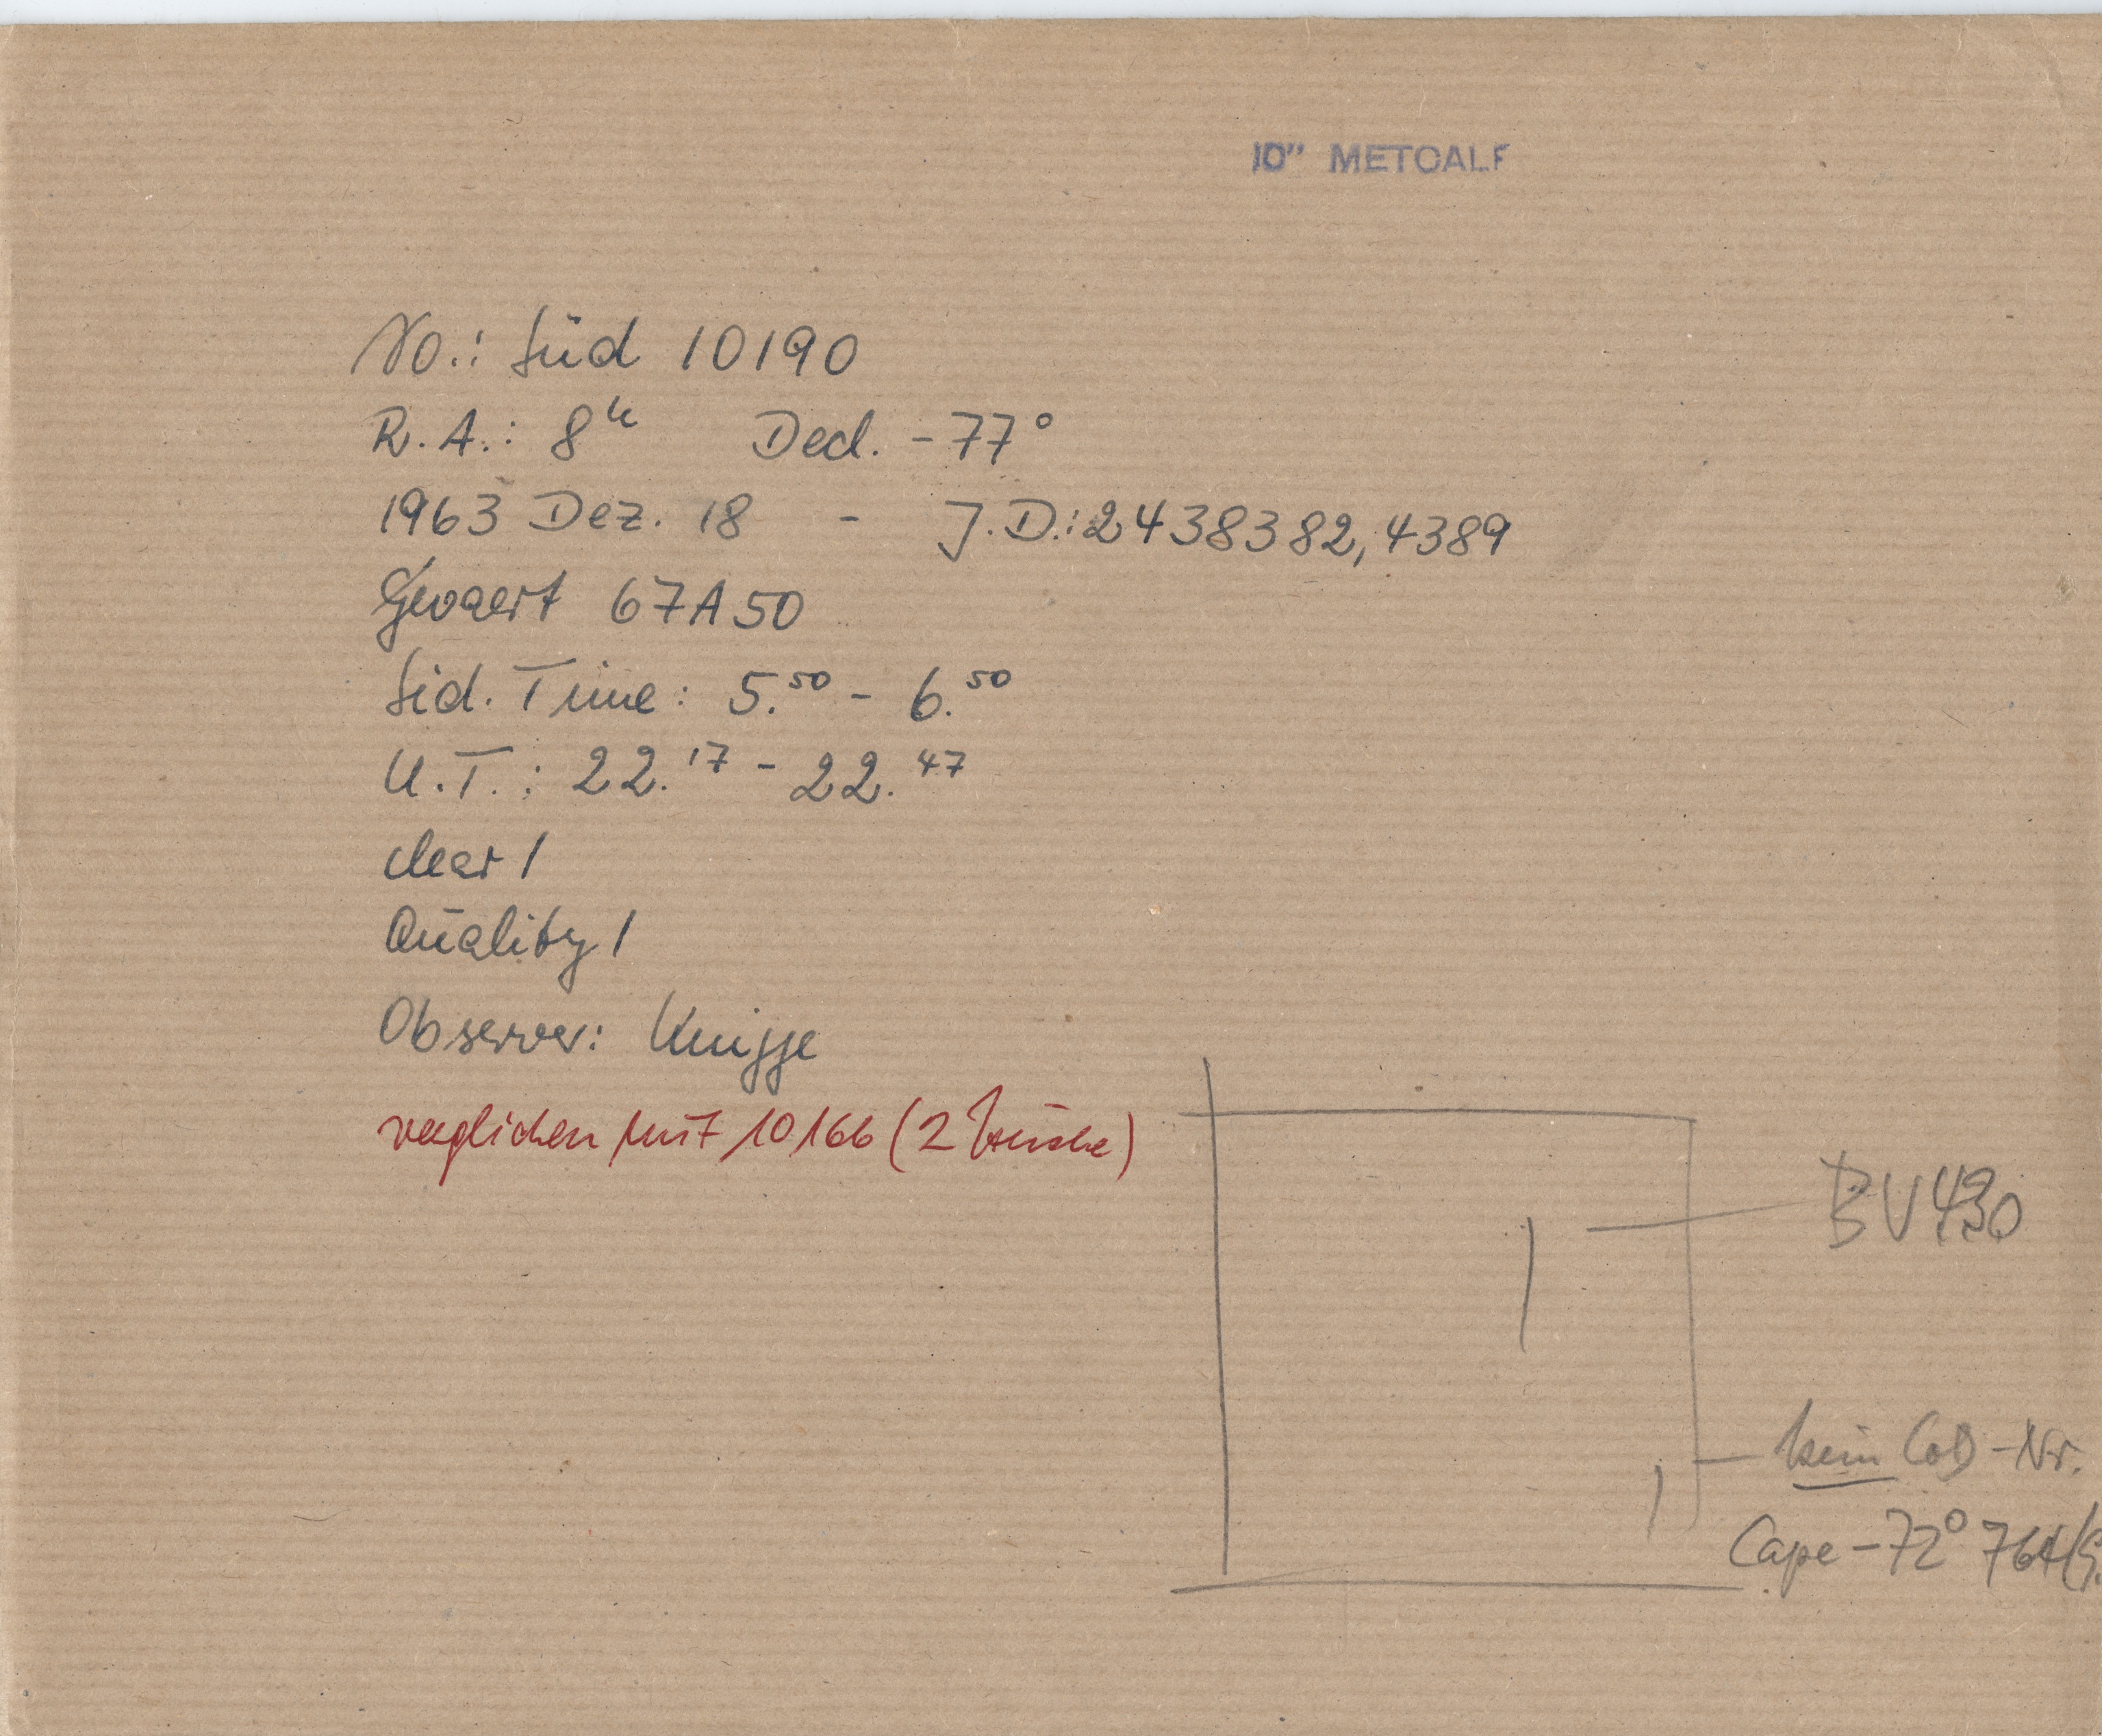 10" METCALF
No.: Süd 10190
R.A.: 8ʰ Decl. -77°
1963 Dez. 18 - J.D.: 2438382,4389
Gevaert 67A50
Sid. Time: 5.⁵⁰ - 6.⁵⁰
U.T.: 22.¹⁷ - 22.⁴⁷
clear 1
Quality 1
Observer: Knigge
verglichen mit 10166 (2
BV 490
kein CoD-Nr.
Cape -72° 764